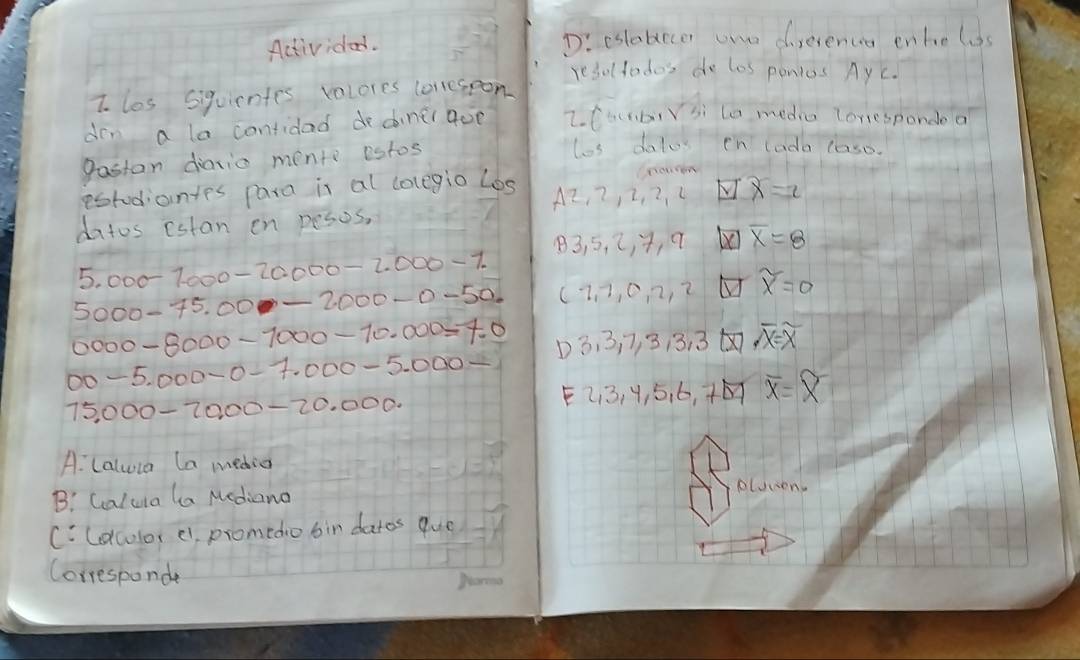 Actividad.
1. Los siguientes valores correspon
den a la cantidad de diner que
gastan diario mente estos
estudiantes para ir al colegio Los
datos estan en pesos.
5.000 - 7.000 - 20.000 - 2.000 - 1.
5000 - 15.000 - 2000 - 0 - 50.
0000 - 8000 - 1000 - 10.000 - 7.0
00 - 5.000 - 0 - 7.000 - 5.000 -
15,000 - 2000 - 20.000.
A: Calcula la media
B: Calcula la Mediana
C: Calcular el promedio sin datos que
Corresponde
Norma
D: establecer una diferencia entre los
resultados de los puntos A y C.
2. V si la media corresponde a
los datos en cada caso.
A 2, 2, 2, 2, 2 x̃ = 2
B 3, 5, 2, 7, 9 x̄ = 8
C 2, 1, 0, 2, 2 x̃ = 0
D 3, 3, 7, 3, 3, 3 x̄ = x̃
E 2, 3, 4, 5, 6, 7 x̄ = x̃
Solucion.